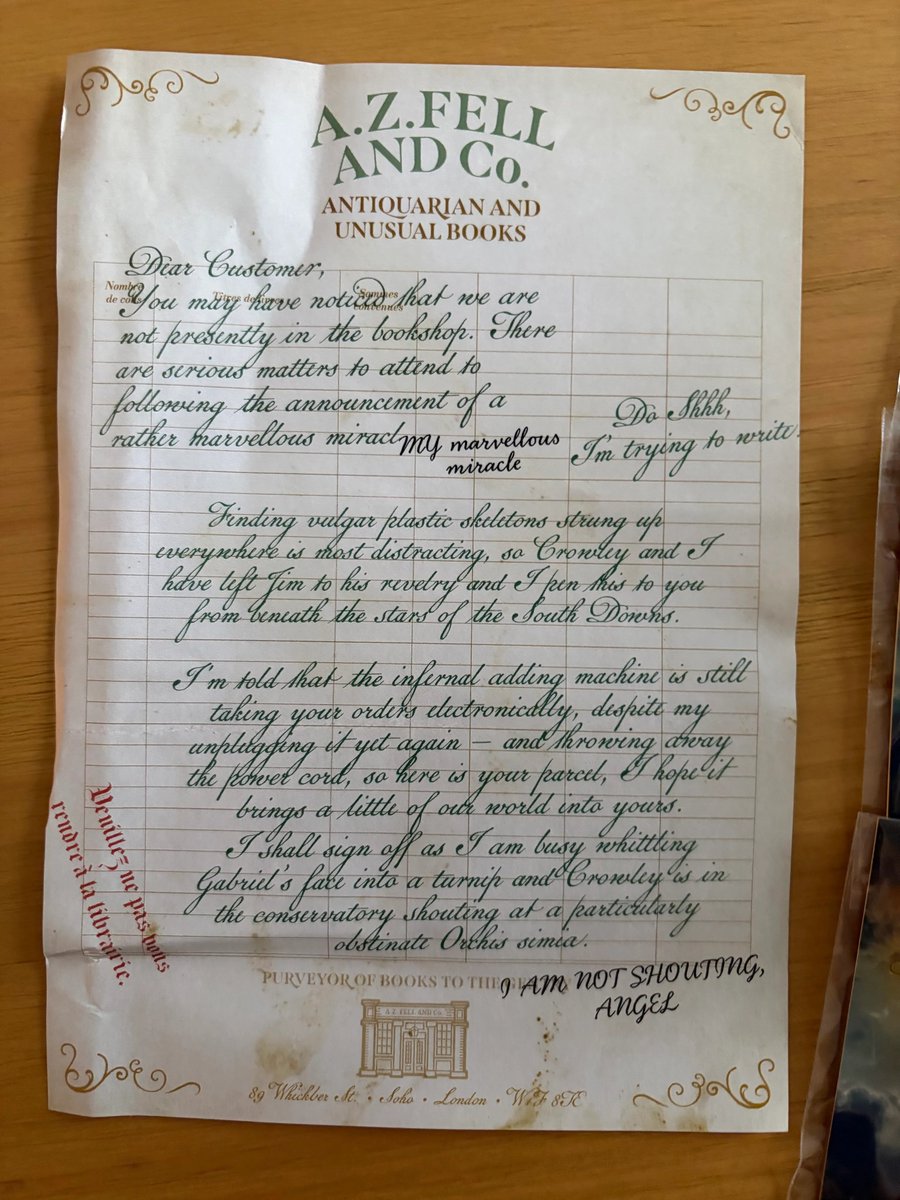 A.Z.FELL
AND Co.
ANTIQUARIAN AND
UNUSUAL BOOKS
Dear Customer,
Nombre
de colis
Titres de
Sommes
convenues
You may have noticed that we are
not presently in the bookshop. There
are serious matters to attend to
following the announcement of a
rather marvellous miracl
MY marvellous
miracle
Do Shhh,
I'm trying to write.
Finding vulgar plastic skeletons strung up
everywhere is most distracting, so Crowley and I
have left Jim to his revelry and I pen this to you
from beneath the stars of the South Downs.
I'm told that the infernal adding machine is still
taking your orders electronically, despite my
unplugging it yet again – and throwing away
the power cord, so here is your parcel, I hope it
brings a little of our world into yours.
I shall sign off as I am busy whittling
Gabriel's face into a turnip and Crowley is in
the conservatory shouting at a particularly
obstinate Orchis simia.
I AM NOT SHOUTING,
ANGEL
Veuillez ne pas vous
rendre à la librairie.
PURVEYOR OF BOOKS TO THE
A. Z. FELL AND Co.
89 Whickber St. • Soho • London • W1F 8TE